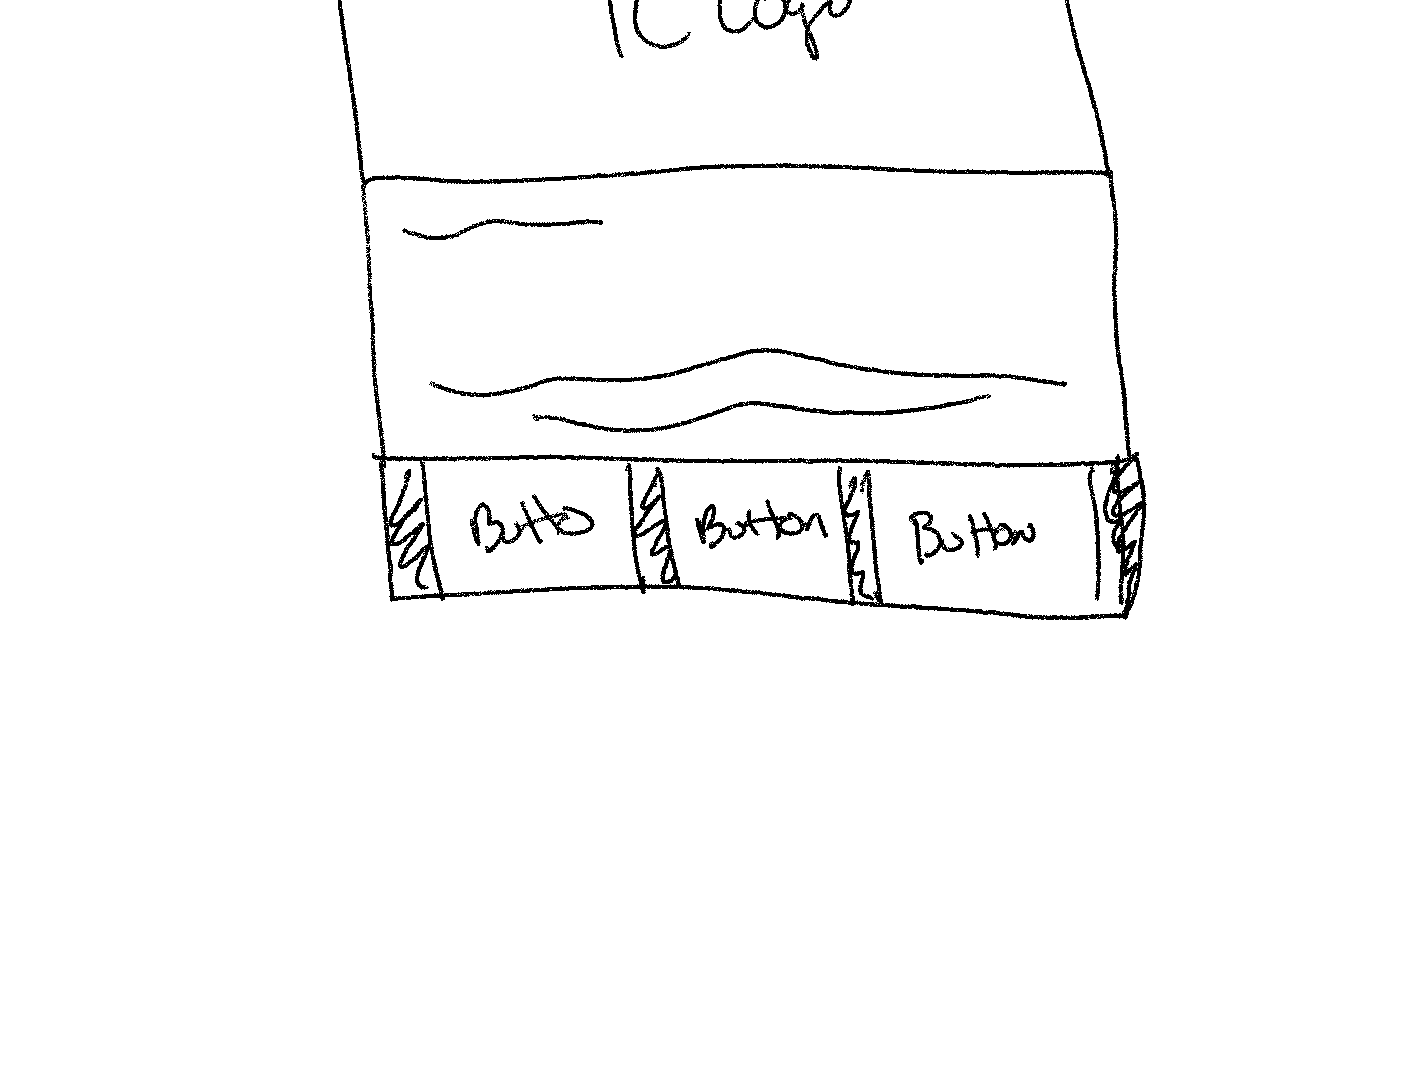 IC Logo
Butto Button Button